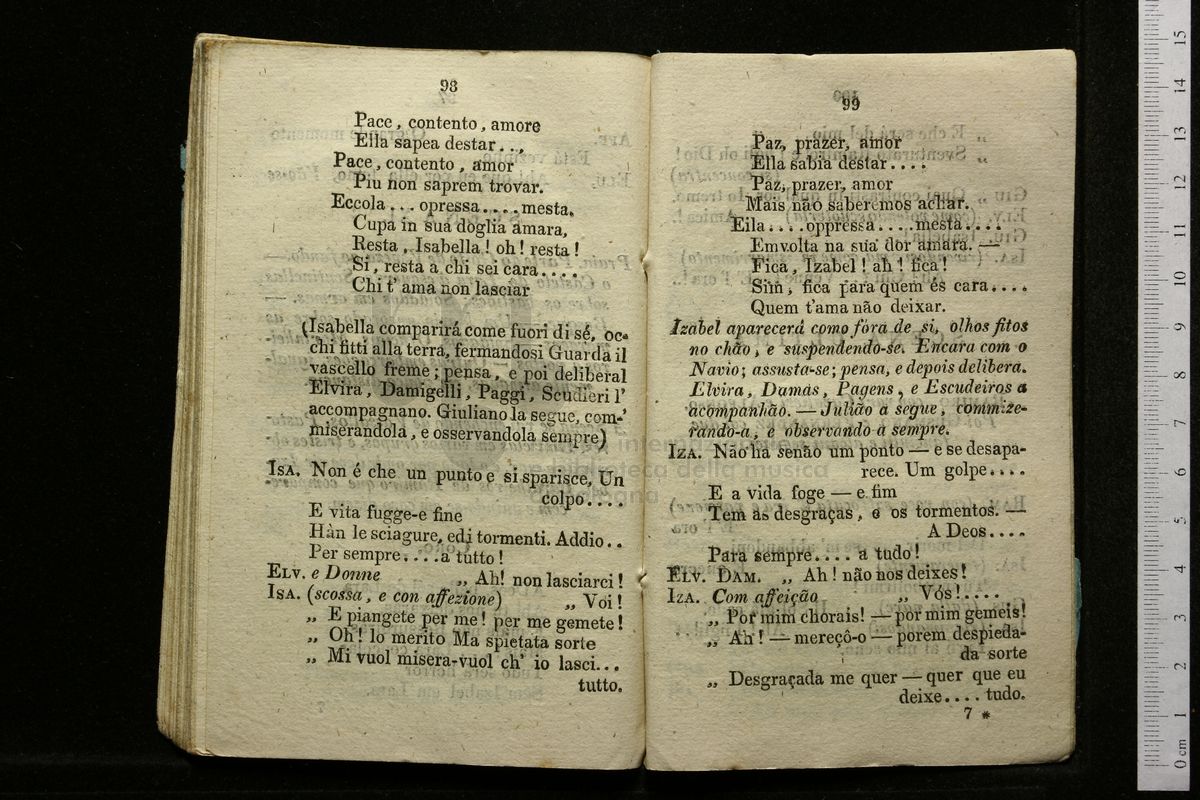 98
Pace, contento, amore
Ella sapea destar...
Pace, contento, amor
Piu non saprem trovar.
Eccola... opressa.... mesta.
Cupa in sua doglia amara,
Resta, Isabella! oh! resta!
Si, resta a chi sei cara....
Chi t' ama non lasciar
(Isabella comparirá come fuori di sé, oc-
chi fitti alla terra, fermandosi Guarda il
vascello freme; pensa, e poi deliberal
Elvira, Damigelli, Paggi, Scudieri l'
accompagnano. Giuliano la segue, com-
miserandola, e osservandola sempre)
ISA. Non é che un punto e si sparisce, Un
colpo....
E vita fugge-e fine
Han le sciagure, edi tormenti. Addio..
Per sempre.... a tutto!
ELV. e Donne „ Ah! non lasciarci!
ISA. (scossa, e con affezione) „ Voi!
„ E piangete per me! per me gemete!
„ Oh! lo merito Ma spietata sorte
„ Mi vuol misera-vuol ch' io lasci...
tutto.
99
Paz, prazer, amor
Ella sabia destar....
Paz, prazer, amor
Mais não saberemos achar.
Eila.... oppressa.... mesta....
Emvolta na sua dor amara. —
Fica, Izabel! ah! fica!
Sim, fica para quem és cara....
Quem t'ama não deixar.
Izabel aparecerá como fóra de si, olhos fitos
no chão, e suspendendo-se. Encara com o
Navio; assusta-se; pensa, e depois delibera.
Elvira, Damas, Pagens, e Escudeiros a
acompanhão. — Julião a segue, commize-
rando-a, e observando a sempre.
IZA. Não ha senão um ponto — e se desapa-
rece. Um golpe....
E a vida foge — e fim
Tem as desgraças, e os tormentos. —
A Deos....
Para sempre.... a tudo!
ELV. DAM. „ Ah! não nos deixes!
IZA. Com affeição „ Vós!....
„ Por mim chorais! — por mim gemeis!
„ Ah! — mereçô-o — porem despieda-
da sorte
„ Desgraçada me quer — quer que eu
deixe.... tudo.
7 *